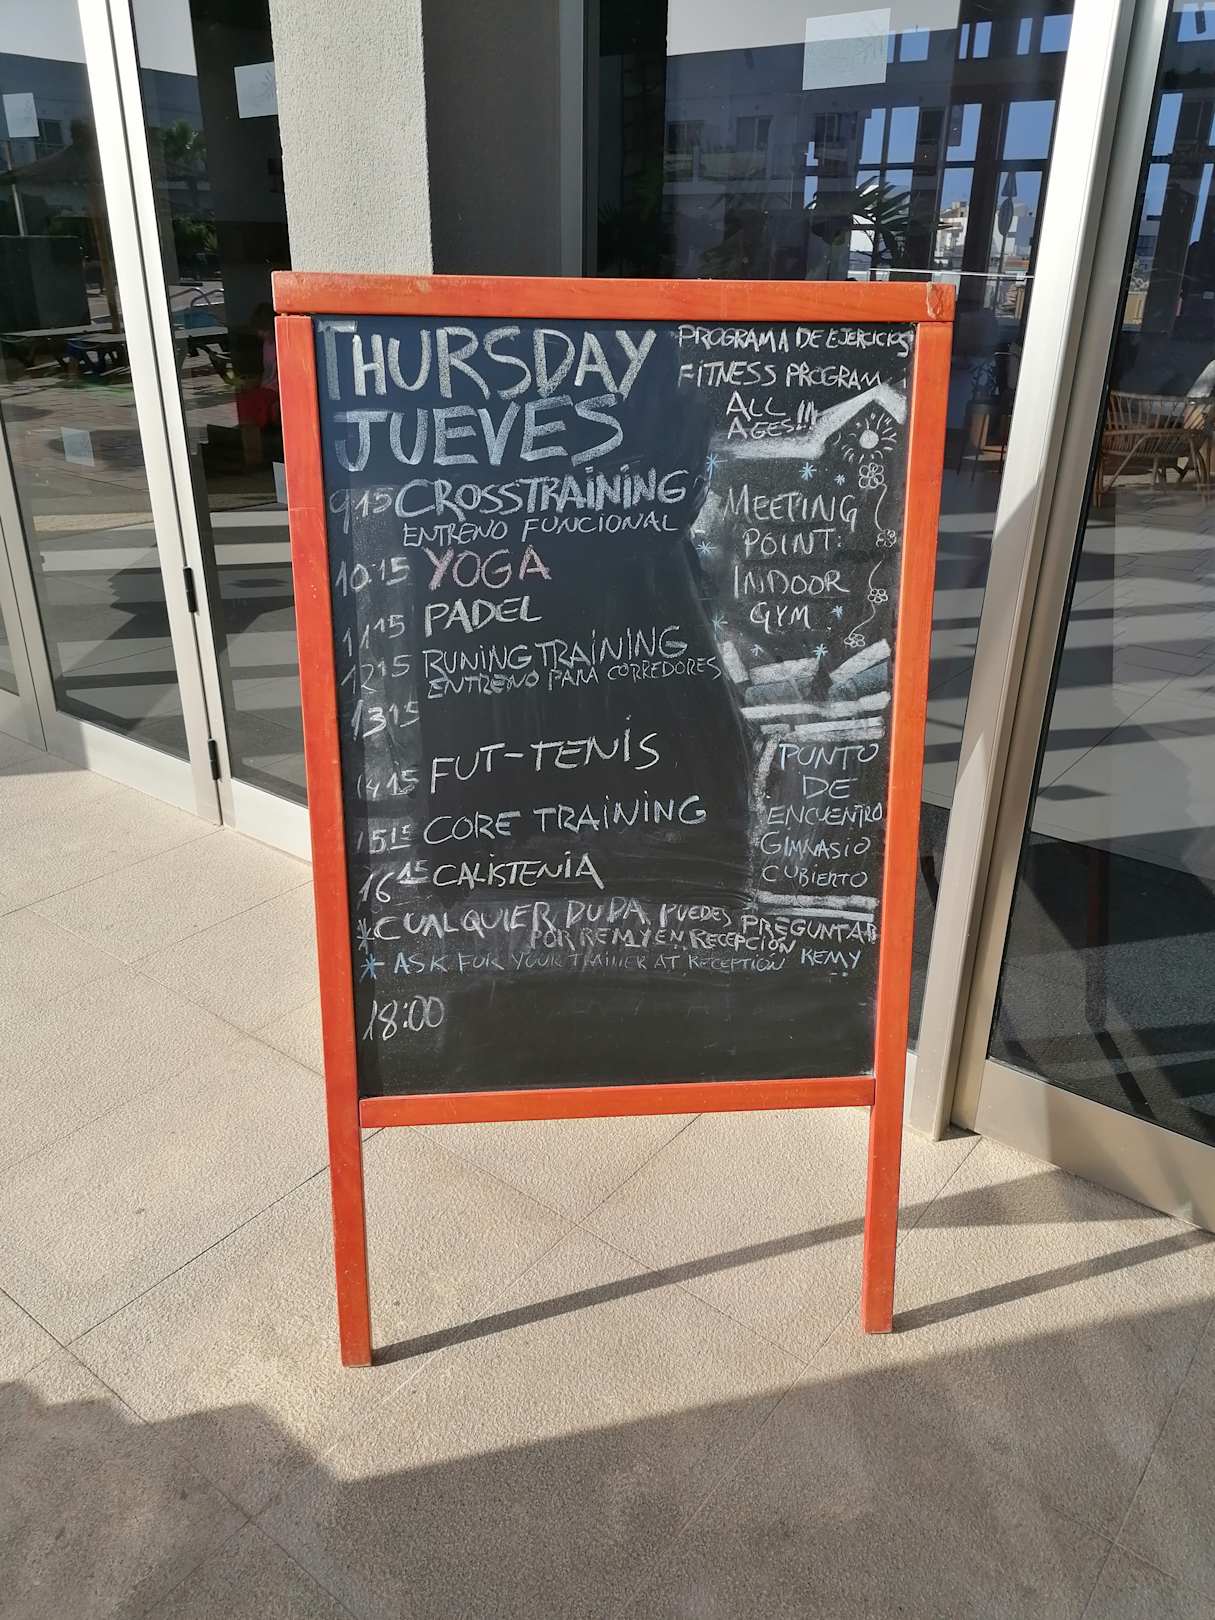 THURSDAY
JUEVES
PROGRAMA DE EJERCICIOS
FITNESS PROGRAM
ALL
AGES!!!
9:15 CROSSTRAINING
ENTRENO FUNCIONAL
10:15 YOGA
11:15 PADEL
12:15 RUNING TRAINING
ENTRENO PARA CORREDORES
13:15
14:15 FUT-TENIS
15:15 CORE TRAINING
16:15 CALISTENIA
MEETING
POINT:
INDOOR
GYM
PUNTO
DE
ENCUENTRO
GIMNASIO
CUBIERTO
*CUALQUIER DUDA PUEDES PREGUNTAR
POR REMY EN RECEPCIÓN
* ASK FOR YOUR TRAINER AT RECEPTION REMY
18:00